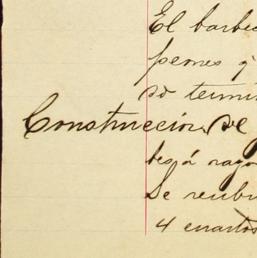 El barbe
pernes y
so termi
Construccion de
bes á razo
Se recubr
4 cuartos